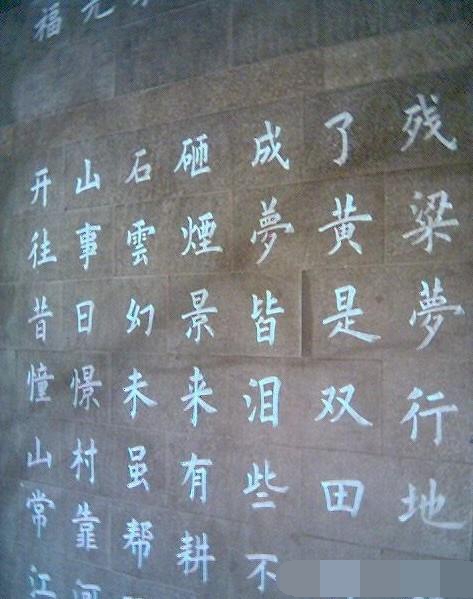 福元
开山石砸成了残
往事雲煙夢黄粱
昔日幻景皆是夢
憧憬未来泪双行
山村虽有些田地
常靠帮耕不
江河